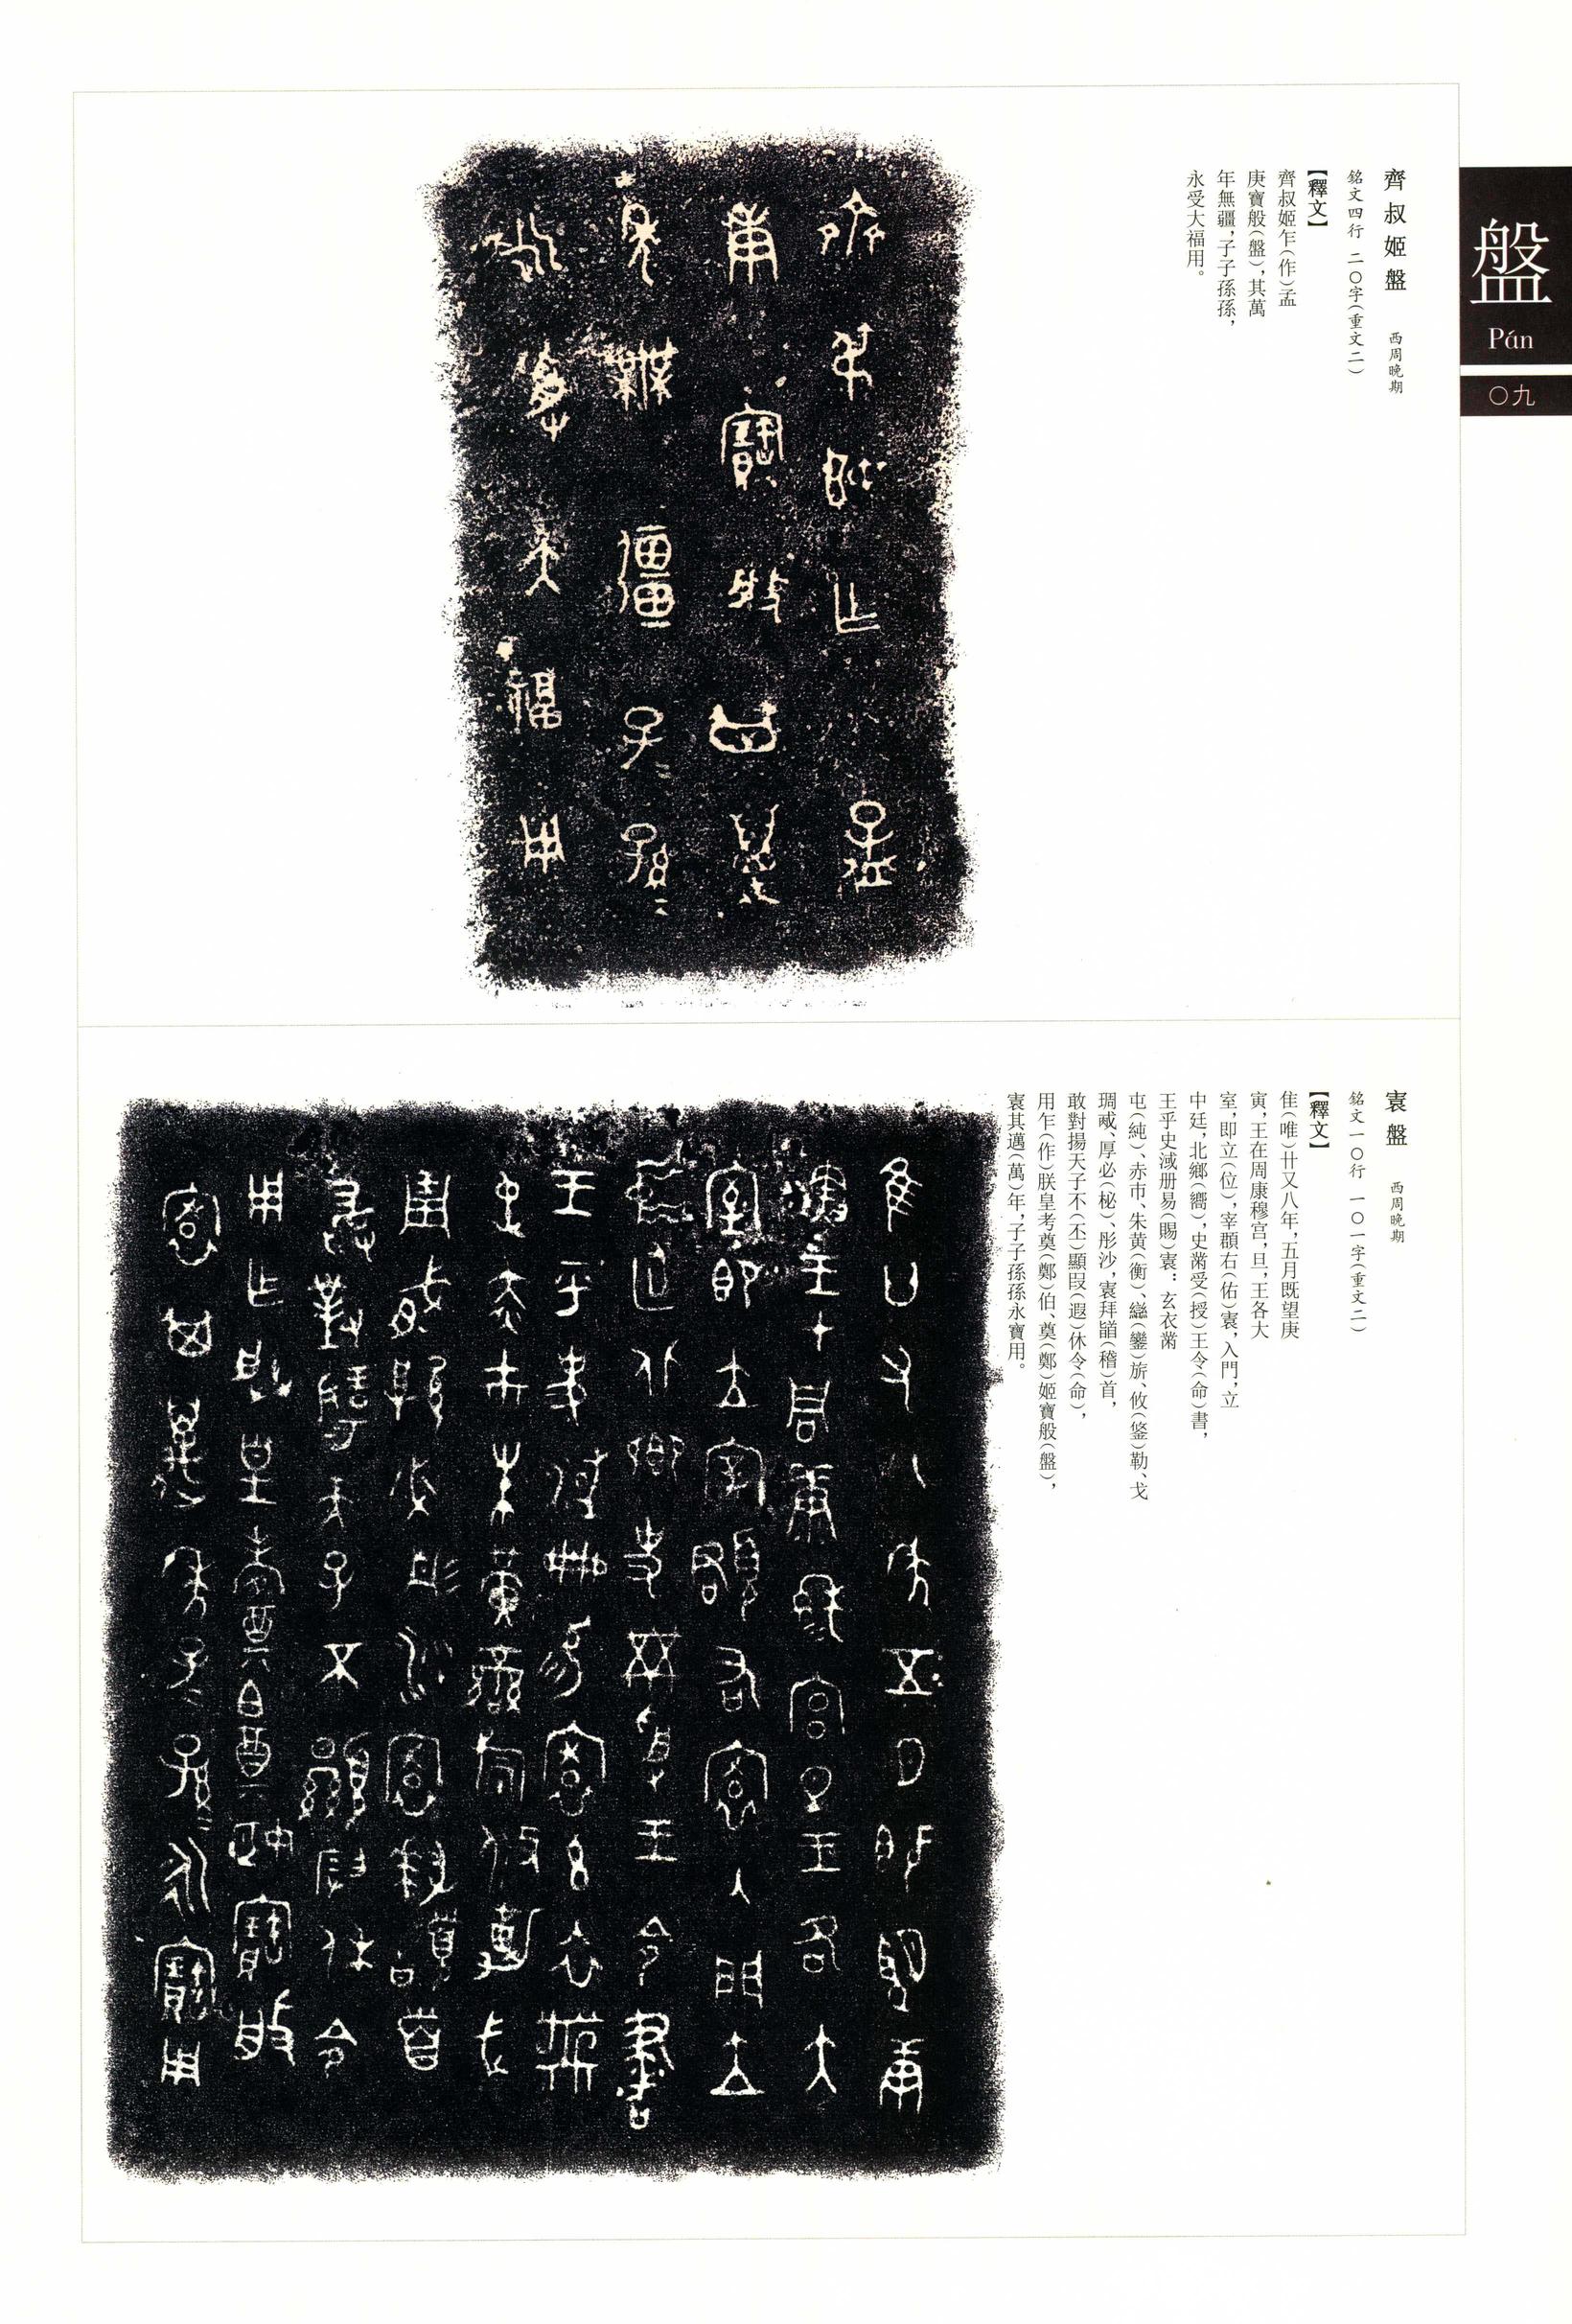 盤
Pán
〇九
齊叔姬盤 西周晚期
銘文四行 二〇字(重文二)
【釋文】
齊叔姬乍(作)孟
庚寶般(盤),其萬
年無疆,子子孫孫,
永受大福用。
袁盤 西周晚期
銘文一〇行 一〇一字(重文二)
【釋文】
隹(唯)廿又八年,五月既望庚
寅,王在周康穆宫,旦,王各大
室,即立(位),宰頵右(佑)袁,入門,立
中廷,北鄉(嚮),史黹受(授)王令(命)書,
王乎史淢册易(賜)袁:玄衣黹
屯(純)、赤巿、朱黄(衡)、䜌(鑾)旂、攸(鋚)勒、戈
琱㦸、厚必(柲)、彤沙,袁拜𩒨(稽)首,
敢對揚天子不(丕)顯叚(遐)休令(命),
用乍(作)朕皇考奠(鄭)伯、奠(鄭)姬寶般(盤),
袁其邁(萬)年,子子孫孫永寶用。